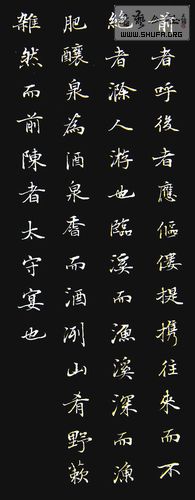 前者呼後者應傴僂提攜往來而不
絶者滁人游也臨溪而漁溪深而漁
肥釀泉為酒泉香而酒洌山肴野蔌
雜然而前陳者太守宴也
WWW.SHUFA.ORG